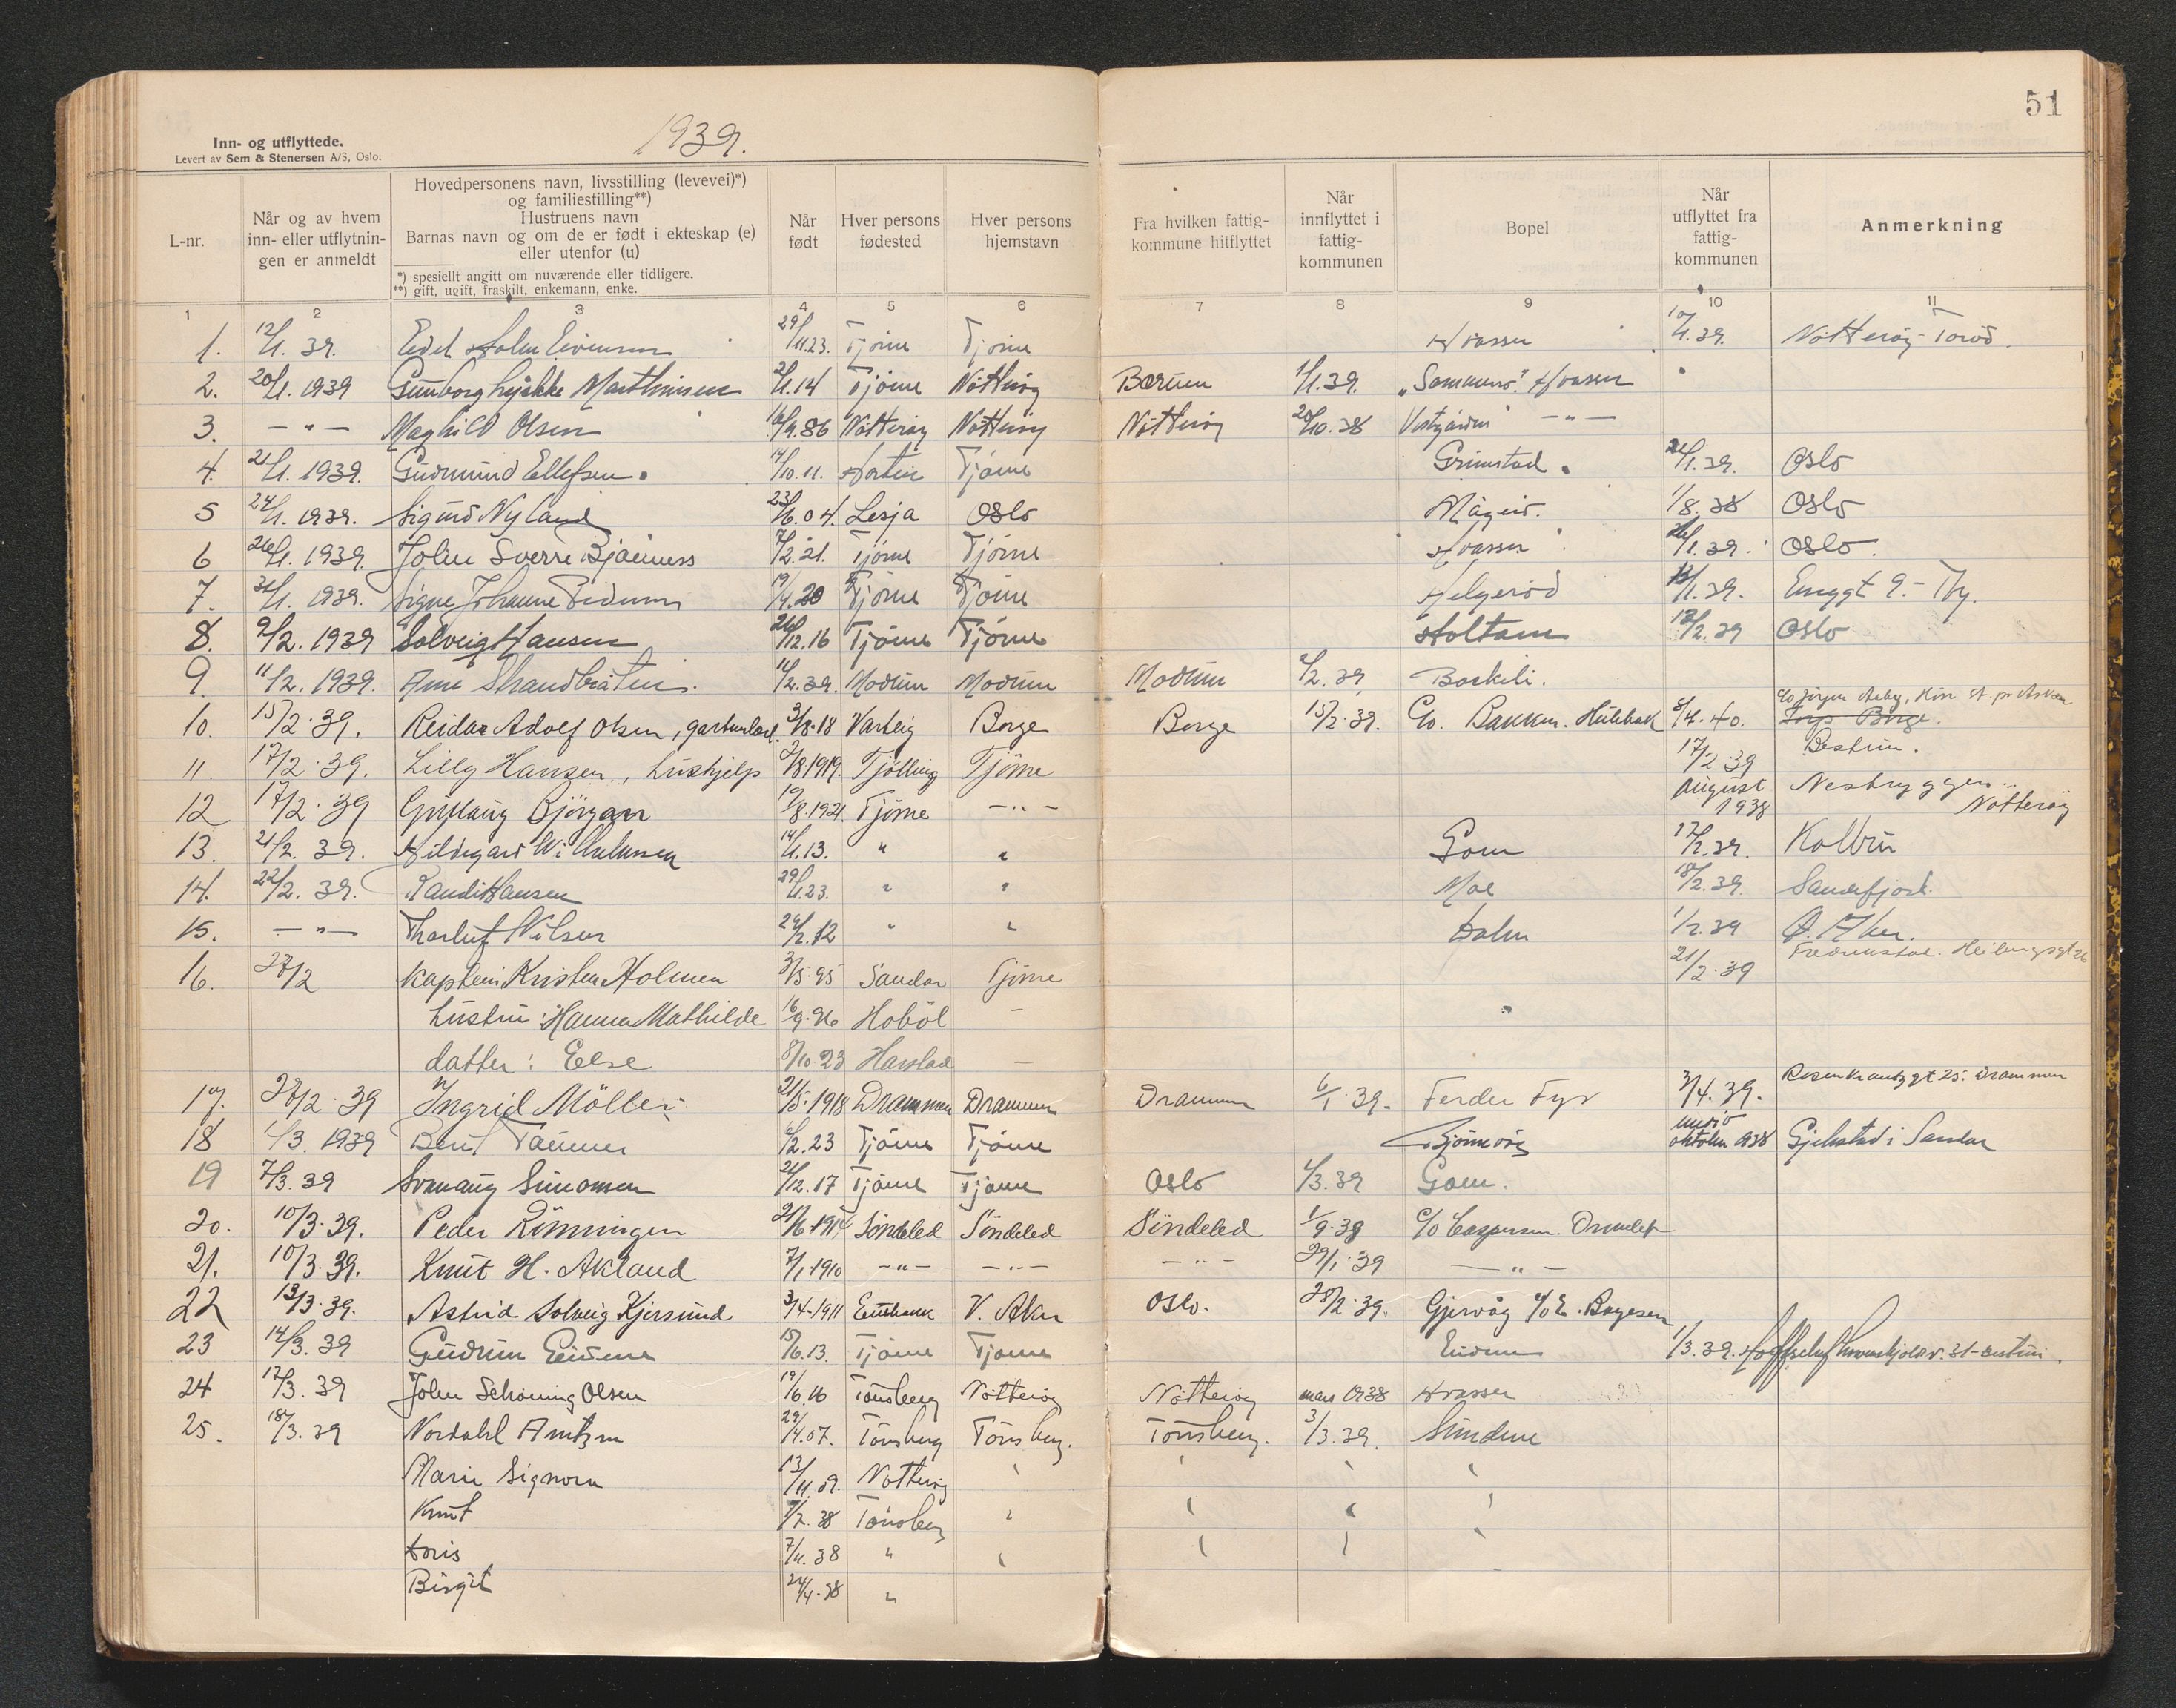 51
Inn- og utflyttede.
Levert av Sem & Stenersen A/S, Oslo.
1939.
L-nr.
Når og av hvem inn- eller utflytnin-gen er anmeldt
Hovedpersonens navn, livsstilling (levevei)*)
og familiestilling**)
Hustruens navn
Barnas navn og om de er født i ekteskap (e)
eller utenfor (u)
*) spesiellt angitt om nuværende eller tidligere.
**) gift, ugift, fraskilt, enkemann, enke.
Når født
Hver persons fødested
Hver persons hjemstavn
Fra hvilken fattig-kommune hitflyttet
Når innflyttet i fattig-kommunen
Bopel
Når utflyttet fra fattig-kommunen
Anmerkning
1 2 3 4 5 6 7 8 9 10 11
1. 12/1. 39. Edel Holm Evensen 29/11.23. Tjöme Tjöme Hvasser 10/1.39. Nötteröy - Torød.
2. 20/1. 1939 Gunborg Marthinsen 2/1.14 Tjöme Nötteröy Bærum 1/1.39. Hvasser
3. — " — Maghild Olsen 16/9.86 Nötteröy Nötteröy Nötteröy 20/10.38 — " —
4. 21/1. 1939. Gudmund Ellefsen. 4/10.11. Horten Tjöme Grimstad. 21/1.39. Oslo
5 24/1. 1939. Sigurd Nyland 23/6.04. Lesja Oslo Mågerö. 1/8.38 Oslo
6 26/1. 1939. John Sverre Bjånness 7/2.21. Tjöme Tjöme Hvasser 26/1.39. Oslo.
7. 31/1. 1939. Signe Johanne 19/4.20 Tjöme Tjöme Helgerød 13/1.39. Enggt 9. - Tbg.
8. 9/2. 1939 Solveig Hansen 26/12.16 Tjöme Tjöme Holtane 12/2.39 Oslo
9. 11/2. 1939. Arne Strandbråten. 11/2.39. Modum Modum Modum 2/2.39 Barkili.
10. 15/2. 39. Reidar Adolf Olsen, gartnerlærl. 3/8.18 Varteig Borge Borge 15/2.39. C/o. Bakken. Hulebak 8/4.40. Torp Borge.
11. 17/2. 39. Lilly Hansen, hushjelp 2/8.1919. Tjölling Tjöme 17/2 39
12 17/2. 39 Gudlaug Björgan 19/8.1921. Tjöme — " — august 1938 Nesbryggen Nötteröy
13. 21/2. 39. Hildegard Wilhelmsen 14/1.13. " " Gom 17/2.39. Kolbu
14. 22/2. 39. Randi Hansen 29/1.23. " " Moe 18/2.39. Sandefjord.
15. — " — Thorleif Nilsen 24/2.12 " " Holm 1/2.39 Ø. Aker.
16. 28/2 kaptein Kristen Holmen 3/5.95 Sandar Tjöme 21/2.39 Fredrikstad.
hustru: Hanna Mathilde 16/9.96 Hobøl —
datter: Else 8/10.23 Harstad —
17. 28/2. 39 Ingrid Möller 21/5.1918 Drammen Drammen Drammen 6/1.39. Ferder Fyr 3/4.39. Rosenkrantzgt 25. Drammen
18 1/3. 1939 Berit 6/2.23 Tjöme Tjöme oktober 1938 Gjekstad i Sandar
19 7/3. 39 Svanaug Simonsen 21/12.17 Tjöme Tjöme Oslo 1/3.39 Gom.
20. 10/3. 39. Peder Rönningen 21/6.1914 Söndeled Söndeled Söndeled 1/9.38 c/o Caspersen. Ormelet
21. 10/3. 39. Knut H. Akland 7/1.1910 — " — — " — — " — 29/1.39 — " —
22 13/3. 39. Astrid Solveig Kjersund 3/4-1911 Eidsberg V. Aker Oslo. 28/2.39. Gjervåg c/o E. Bøgesen
23 14/3. 39 Gudrun 15/6.13. Tjöme Tjöme 1/3.39.
24 17/3. 39 John Schöning Olsen 19/6.16 Tönsberg Nötteröy Nötteröy mars 1938 Hvasser
25. 18/3. 39 Nordahl Arntzen 29/4.07. Tönsberg Tönsberg. Tönsberg. 3/3.39. Sundene
Marie Signora 13/11.09. Nötteröy " " " "
Knut 7/2.38 Tönsberg " " " "
Doris 7/11.38 " " " " "
Birgit 24/4.38 "